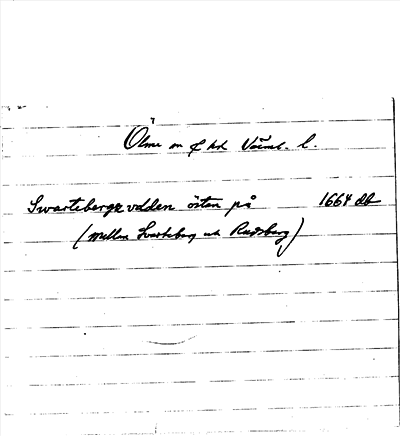 Ölme sn o hd Värml. l.
Swartebergz vdden östen på 1664 db
(mellan Svarteberg och Rudsberg)